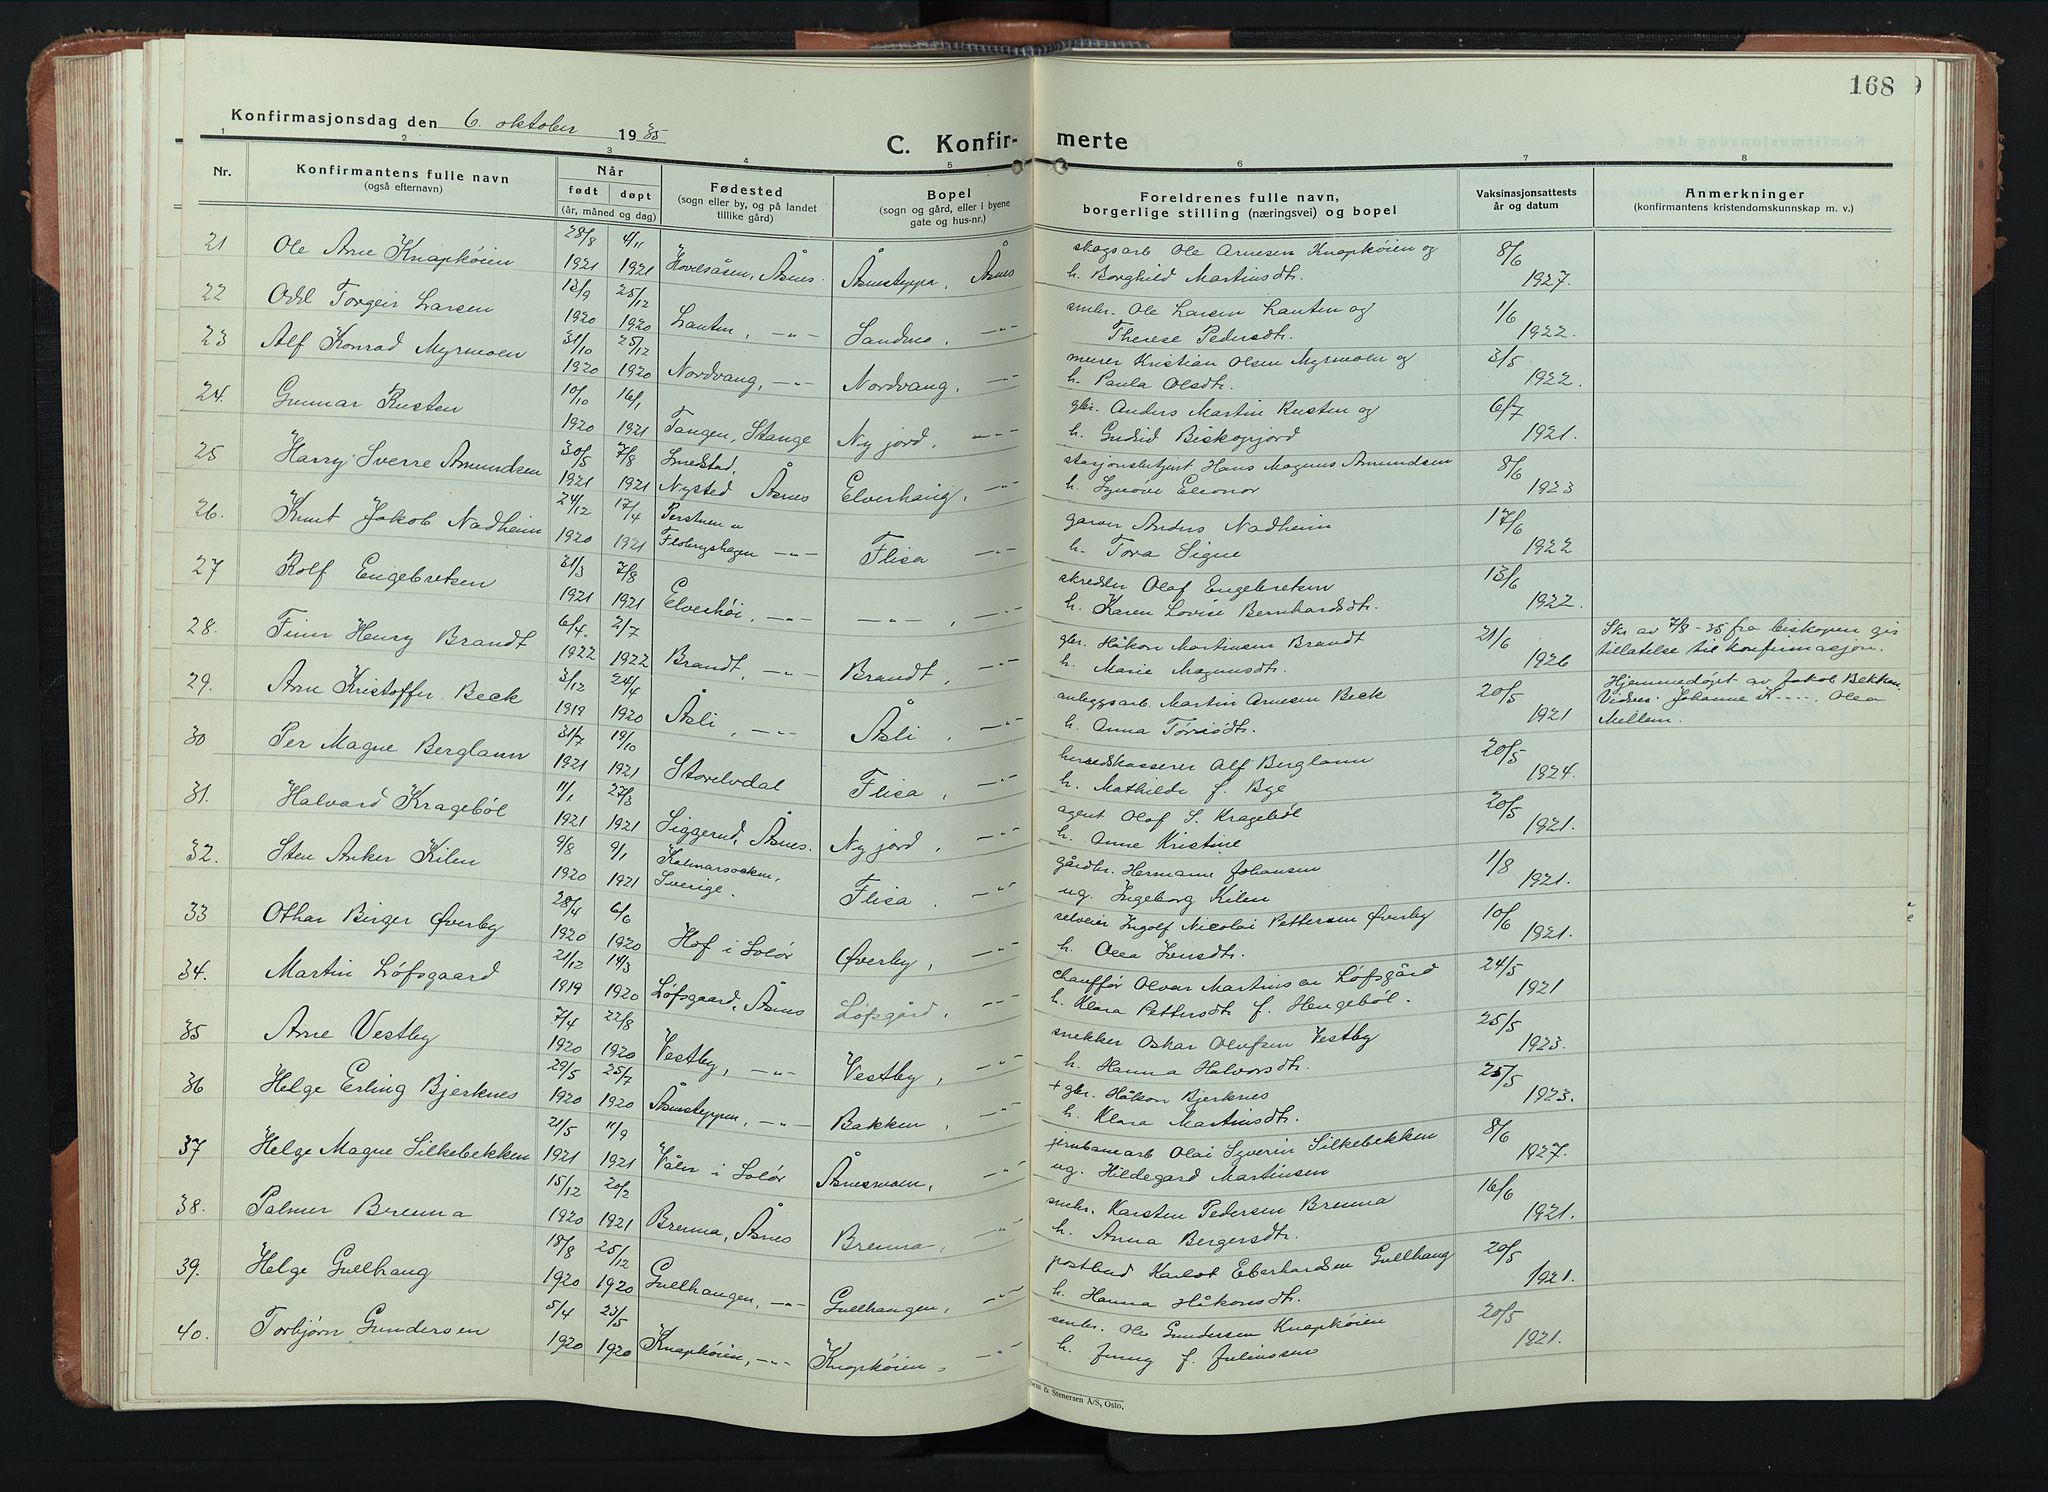 168
Konfirmasjonsdag den 6. oktober 1935
C. Konfirmerte
1 2 3 4 5 6 7 8
Nr.
Konfirmantens fulle navn
(også efternavn)
Når
født døpt
(år, måned og dag)
Fødested
(sogn eller by, og på landet
tillike gård)
Bopel
(sogn og gård, eller i byene
gate og hus-nr.)
Foreldrenes fulle navn,
borgerlige stilling (næringsvei) og bopel
Vaksinasjonsattests
år og datum
Anmerkninger
(konfirmantens kristendomskunnskap m. v.)
21 Ole Arne Knapkøien 28/8 1921 4/11 1921 Hovelsåsen, Åsnes. Åsnesteppa, Åsnes skogsarb Ole Arnesen Knapkøien og 8/6
h. Borghild Martinsdtr. 1927.
22 Odd Torgeir Larsen 13/9 1920 25/12 1920 Lauten, -"- Sandmo, -"- smbr. Ole Larsen Lauten og 1/6
Therese Pedersdtr. 1922.
23 Alf Konrad Myrmoen 31/10 1920 25/12 1920 Nordvang, -"- Nordvang, -"- murer Kristian Olsen Myrmoen og 3/5
h. Paula Olsdtr. 1922.
24. Gunnar Rusten 10/10 1920 16/1 1921 Tangen, Stange Ny jord, -"- gbr. Anders Martin Rusten og 6/7
h. Gudrid Biskopjord 1921.
25 Harry Sverre Amundsen 30/5 1921 7/8 1921 Smedstad, Nysted Åsnes Elverhaug, -"- stasjonsbetjent Hans Magnus Amundsen 8/6
h. Synøve Eleonor 1923
26. Knut Jakob Nadheim 24/12 1920 17/4 1921 Perstuen u Flobergshagen -"- Flisa -"- garver Anders Nadheim 17/6
h. Tora Signe 1922
27 Rolf Engebretsen 31/3 1921 7/8 1921 Elverhøi, -"- -"-, -"- skredder Olaf Engebretsen 13/6
h. Karen Lovise Bernhardsdtr. 1922.
28. Finn Henry Brandt 6/4. 1922 2/7 1922 Brandt, -"- Brandt, -"- gbr. Håkon Martinsen Brandt 21/6 Skr av 7/8-35 fra biskopen gir
h. Marie Magnusdtr. 1926 tillatelse til konfirmasjon.
29. Arne Kristoffer Beck 3/12 1919 24/4 1920 Åsli, -"- Åsli, -"- anleggsarb. Martin Arnesen Beck 20/5 Hjemmedøpt av Jakob Bekken
h. Anna Torisdtr. 1921 Vidner: Johanne K----, Olea
Mellem.
30 Per Magne Berglann 31/7 1921 19/10 1921 Storelvdal Flisa, -"- herredskasserer Alf Berglann 20/5
h. Mathilde f. Bye 1924.
31. Halvard Kragebøl 11/1 1921 27/3 1921 Siggerud, Åsnes. Ny jord, -"- agent Olaf S. Kragebøl 20/5
h. Anne Kristine 1921.
32. Sten Anker Kilen 9/8 1920 9/1 1921 Kalmarsocken, Sverige. Flisa. -"- gårdbr. Hermann Johansen 1/8
ug. Ingeborg Kilen 1921.
33 Othar Birger Øverby 28/4 1920 6/6 1920 Hof i Solør Øverby, -"- selveier Ingolf Nicolai Pettersen Øverby 10/6
h. Olea Ivensdtr. 1921.
34. Martin Løfsgaard 21/12 1919 14/3 1920 Løfsgaard, Åsnes Løfsgård, -"- chauffør Olvar Martinsen Løfsgård 24/5
h. Klara Pettersdtr f. Hengebøl. 1921
35 Arne Vestby 7/4 1920 22/8 1920 Vestby, -"- Vestby, -"- snekker Oskar Olufsen Vestby 25/5
h. Hanna Halvorsdtr. 1923.
36 Helge Erling Bjerknes 29/5 1920 25/7 1920 Åsnesteppen, -"- Bakken, -"- + gbr. Håkon Bjerknes 25/5
h. Klara Martinsdtr. 1923.
37 Helge Magne Silkebekken 21/5 1921 11/9 1921 Våler i Solør Åsnesmoen, -"- jernbanearb Olai Syverin Silkebekken 8/6
ug. Hildegard Martinsen 1927.
38. Palmer Brenna 15/12 1920 20/2 1921 Brenna, Åsnes Brenna, -"- smbr. Karsten Pedersen Brenna 16/6
h. Anna Bergersdtr. 1921.
39. Helge Gullhaug 18/8 1920 25/12 1920 Gullhaugen, -"- Gullhaugen, -"- postbud Karlot Eberhardsen Gullhaug 20/5
h. Hanna Håkonsdtr. 1921.
40. Torbjørn Gundersen 5/4 1920 23/5 1920 Knapkøien, -"- Knapkøien, -"- smbr. Ole Gundersen Knapkøien 20/5
h. Jenny f. Juliussen 1921.
Sem & Stenersen A/S, Oslo.